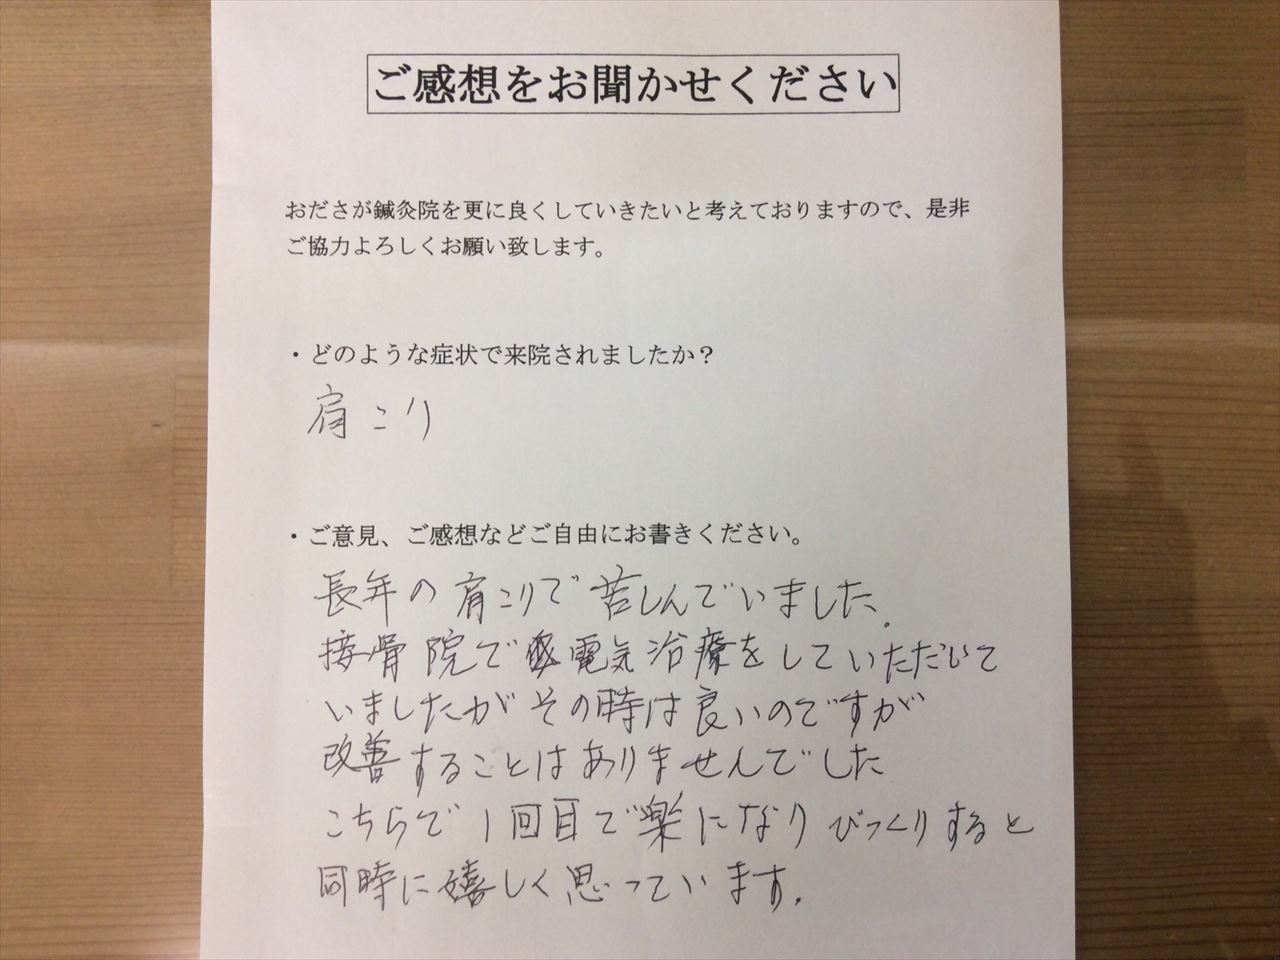 ご感想をお聞かせください
おださが鍼灸院を更に良くしていきたいと考えておりますので、是非
ご協力よろしくお願い致します。
・どのような症状で来院されましたか？
肩こり
・ご意見、ご感想などご自由にお書きください。
長年の肩こりで苦しんでいました。
接骨院で電気治療をしていただいて
いましたがその時は良いのですが
改善することはありませんでした
こちらで1回目で楽になりびっくりすると
同時に嬉しく思っています。